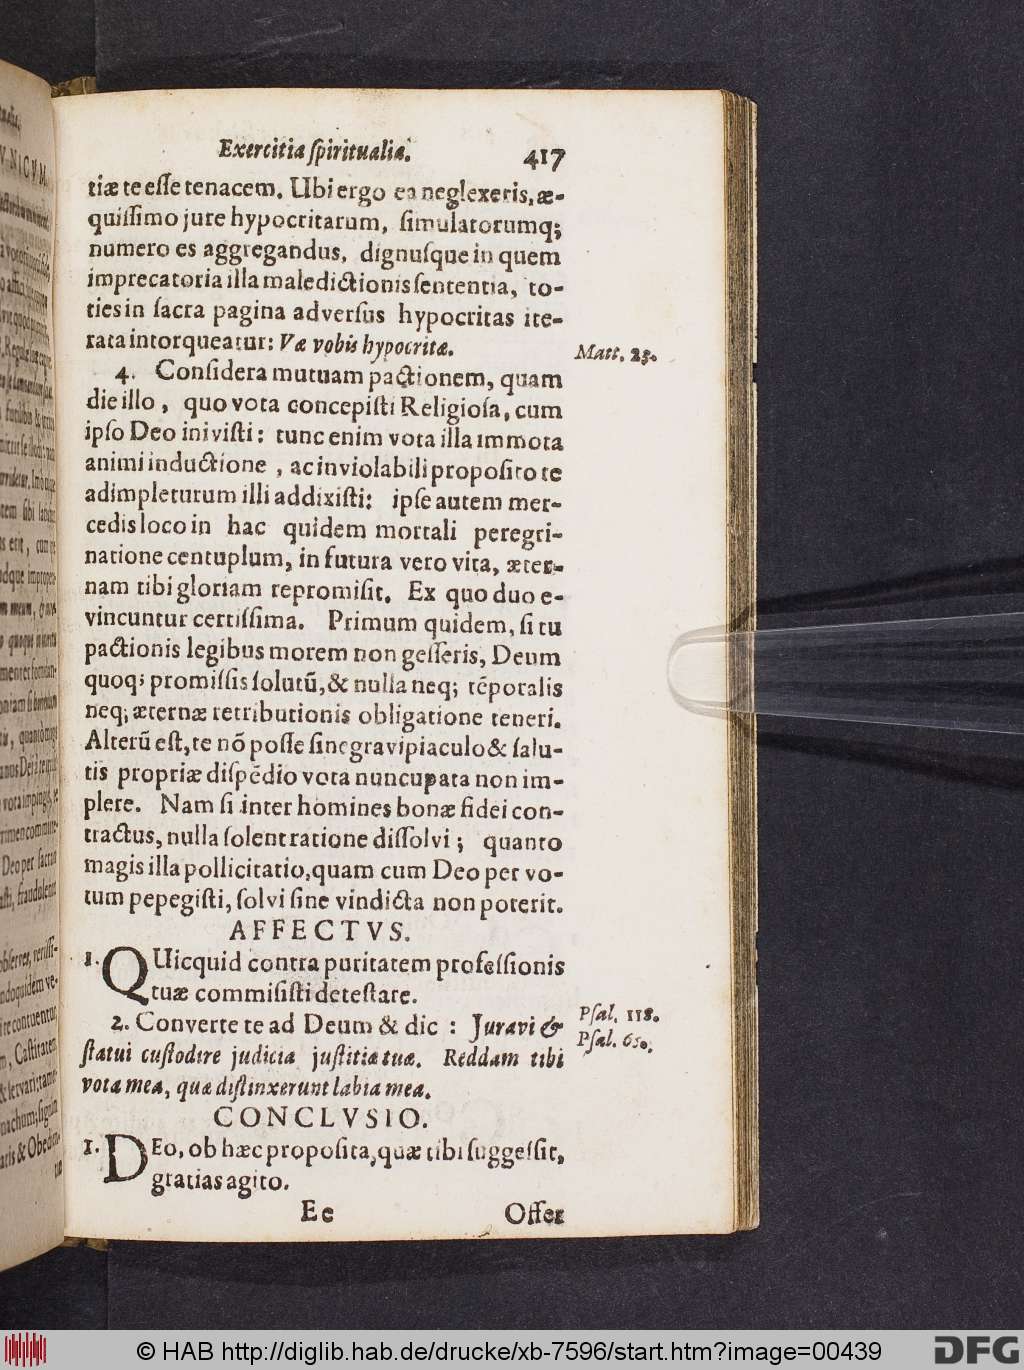 Exercitia ſpiritualia.
417
tiæ te eſſe tenacem. Ubi ergo ea neglexeris, æ-
quiſſimo jure hypocritarum, ſimulatorumq;
numero es aggregandus, dignuſque in quem
imprecatoria illa maledictionis ſententia, to-
ties in ſacra pagina adverſus hypocritas ite-
rata intorqueatur: Væ vobis hypocritæ.
Matt. 23.
4. Conſidera mutuam pactionem, quam
die illo, quo vota concepiſti Religioſa, cum
ipſo Deo iniviſti: tunc enim vota illa immota
animi inductione, ac inviolabili propoſito te
adimpleturum illi addixiſti: ipſe autem mer-
cedis loco in hac quidem mortali peregri-
natione centuplum, in futura vero vita, æter-
nam tibi gloriam repromiſit. Ex quo duo e-
vincuntur certiſſima. Primum quidem, ſi tu
pactionis legibus morem non geſſeris, Deum
quoq; promiſſis ſolutū, & nulla neq; tēporalis
neq; æternæ retributionis obligatione teneri.
Alterū eſt, te nō poſſe ſine gravi piaculo & ſalu-
tis propriæ diſpēdio vota nuncupata non im-
plere. Nam ſi inter homines bonæ fidei con-
tractus, nulla ſolent ratione diſſolvi; quanto
magis illa pollicitatio, quam cum Deo per vo-
tum pepegiſti, ſolvi ſine vindicta non poterit.
AFFECTVS.
1. QUicquid contra puritatem profeſſionis
tuæ commiſiſti deteſtare.
2. Converte te ad Deum & dic: Juravi &
Pſal. 118.
ſtatui cuſtodire judicia juſtitiæ tuæ. Reddam tibi
Pſal. 65.
vota mea, quæ diſtinxerunt labia mea.
CONCLVSIO.
1. DEo, ob hæc propoſita, quæ tibi ſuggeſſit,
gratias agito.
Ee
Offer
© HAB http://diglib.hab.de/drucke/xb-7596/start.htm?image=00439
DFG